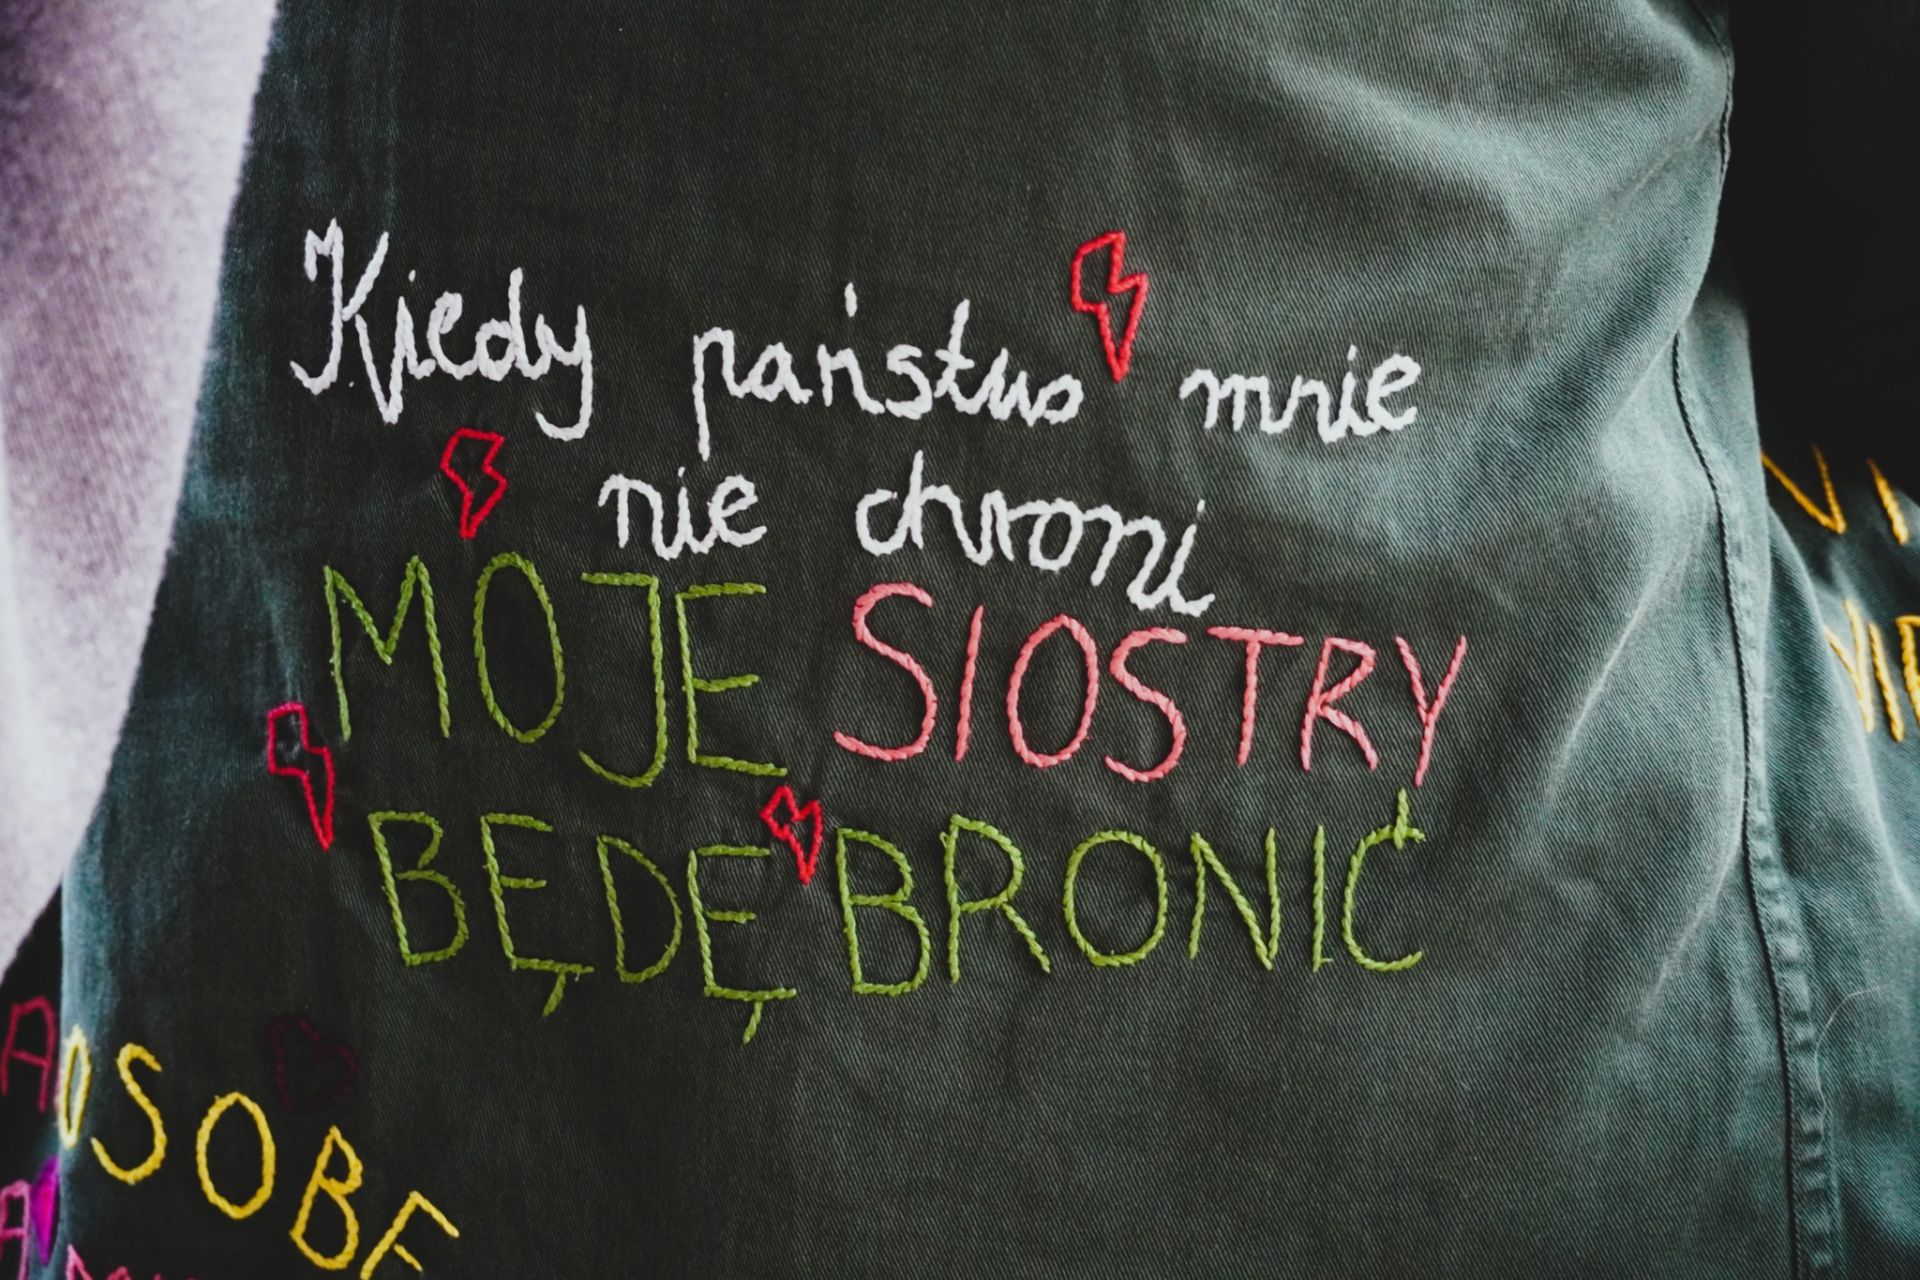 Kiedy państwo mnie
nie chroni
MOJE SIOSTRY
BĘDĘ BRONIĆ
OSOBE